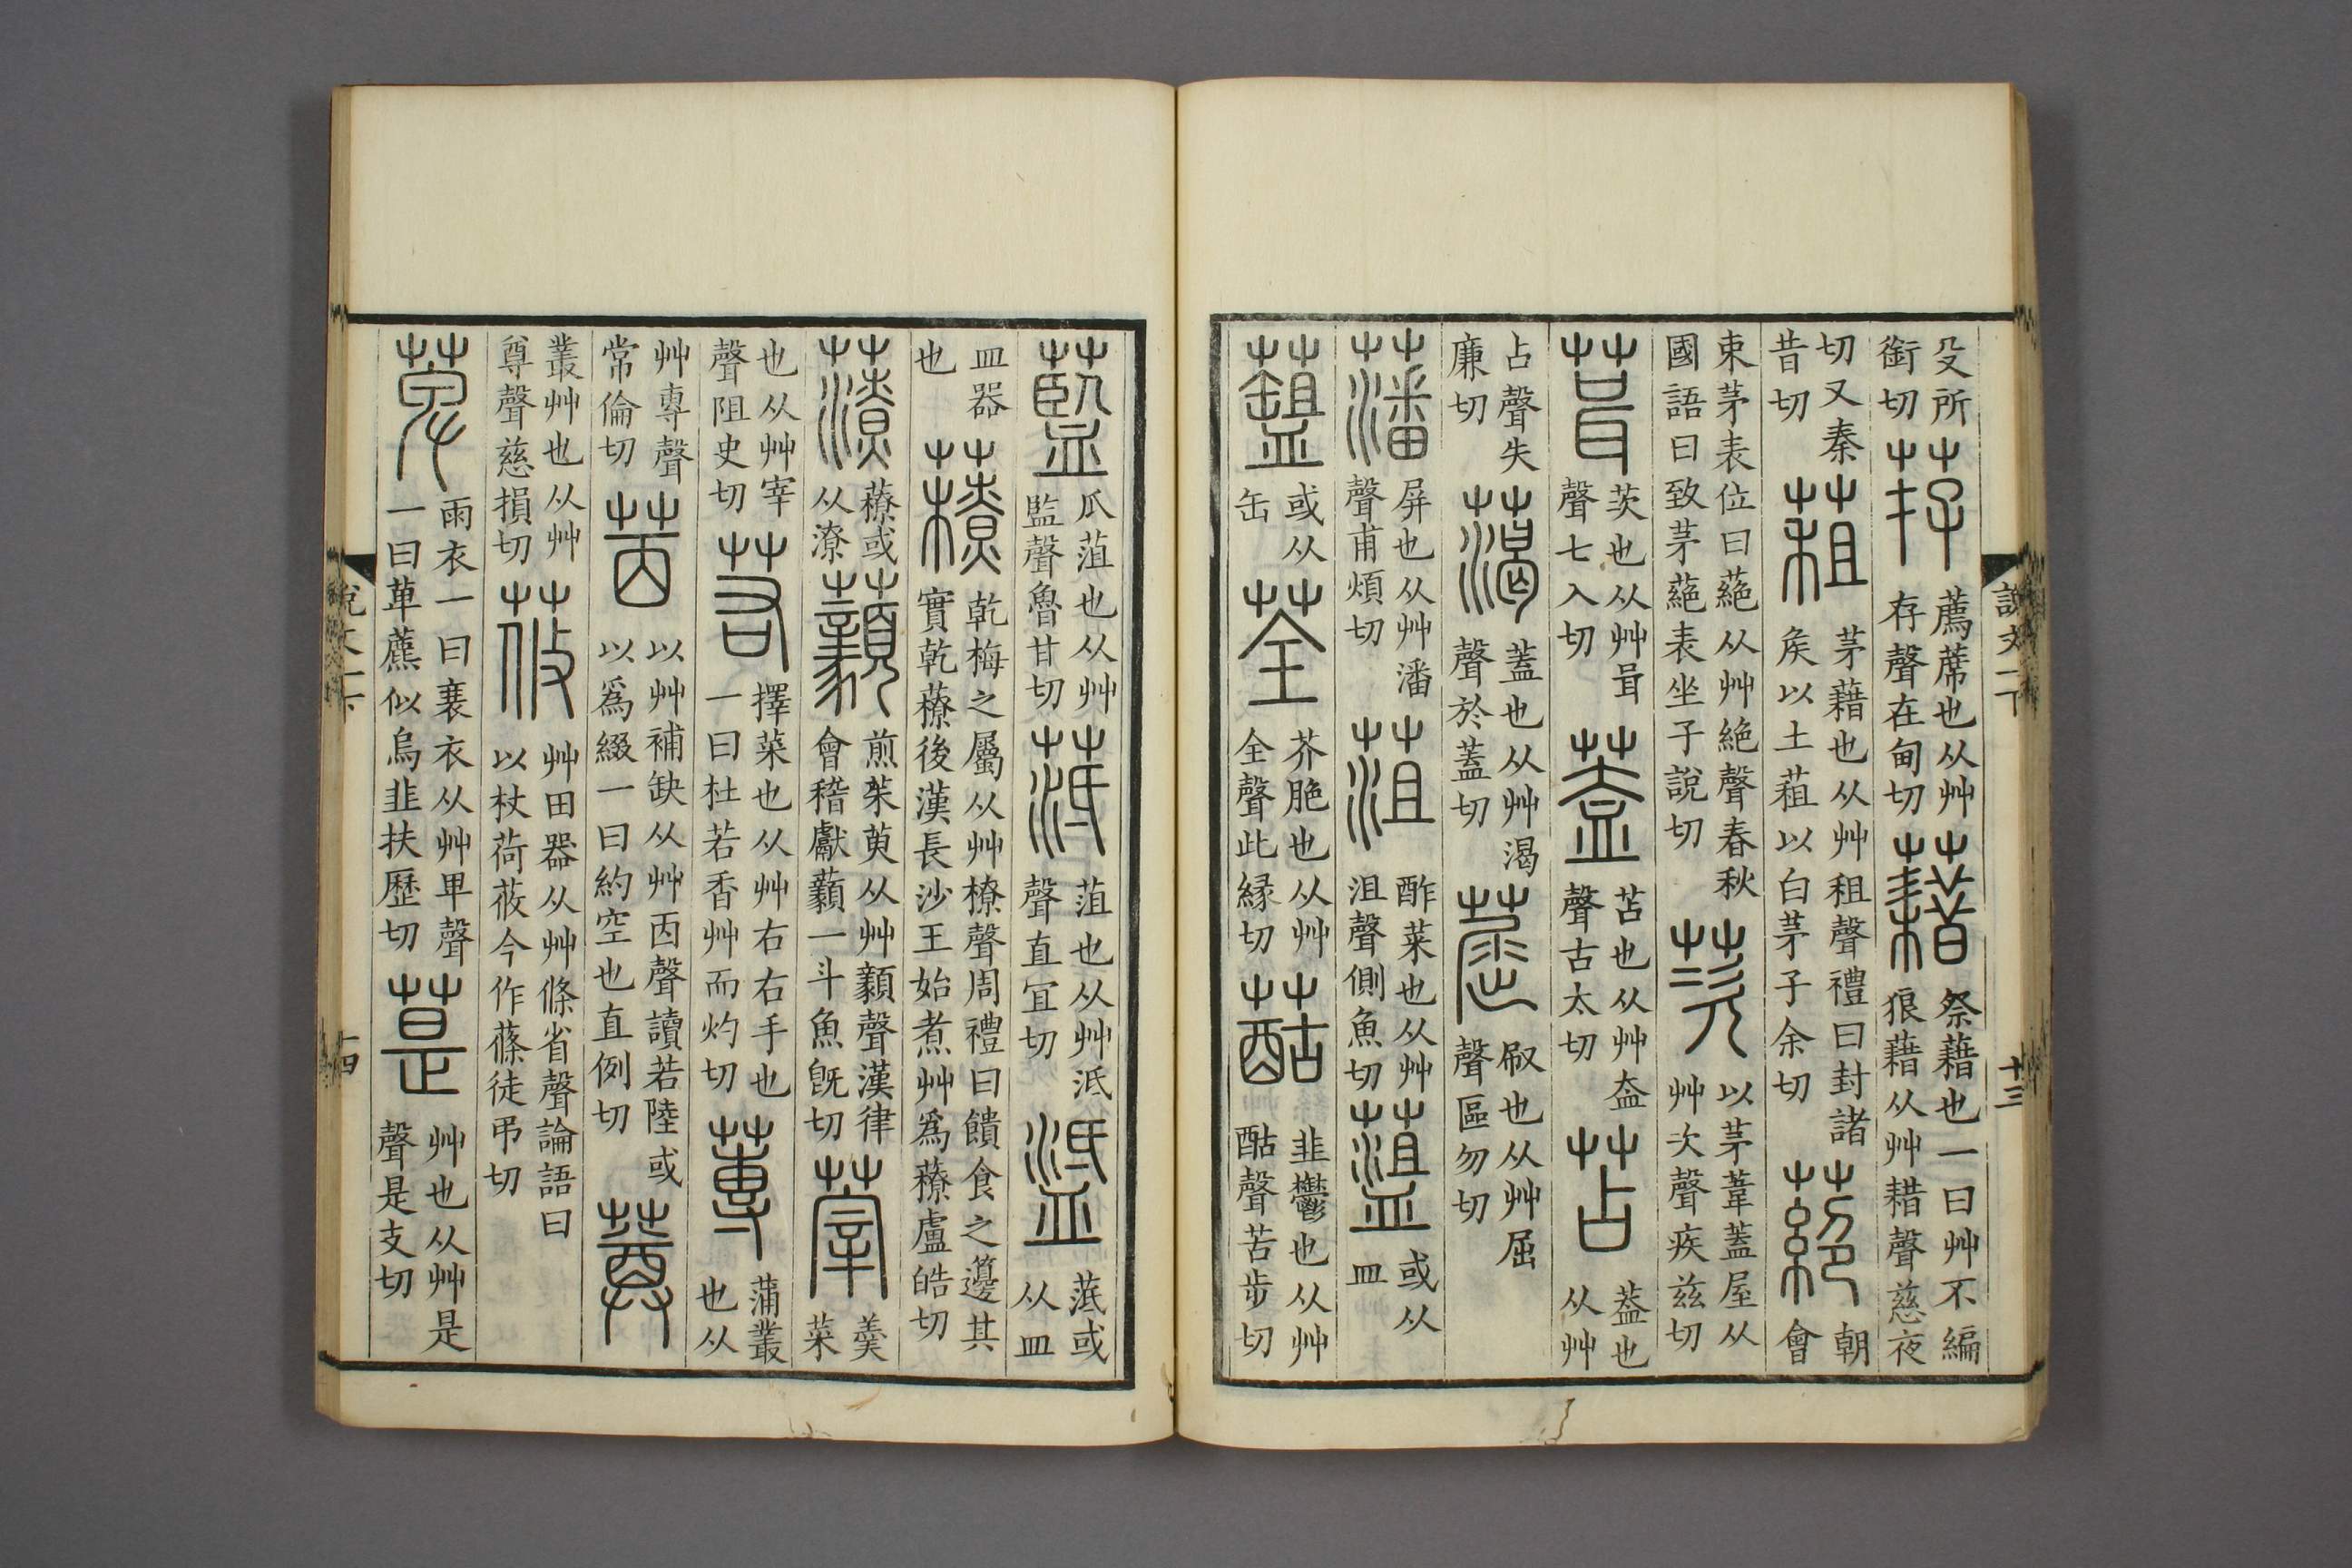 殳所銜切荐薦蓆也从艸存聲在甸切藉祭藉也一曰艸不編狼藉从艸耤聲慈夜
切又秦昔切蒩茅藉也从艸租聲禮曰封諸矦以土蒩以白茅子余切蕝朝會
束茅表位曰蕝从艸絕聲春秋國語曰致茅蕝表坐子說切茨以茅葦蓋屋从艸次聲疾兹切
葺茨也从艸咠聲七入切蓋苫也从艸盇聲古太切苫葢也从艸
占聲失廉切䔽蓋也从艸渴聲於蓋切䓛㕞也从艸屈聲區勿切
藩屏也从艸潘聲甫煩切菹酢菜也从艸沮聲側魚切或从皿
或从缶荃芥脃也从艸全聲此縁切韭鬱也从艸酤聲苦步切
說文一下 十三
藍瓜菹也从艸監聲魯甘切菹也从艸泜聲直宐切或从皿
皿器也䕩乾梅之屬从艸橑聲周禮曰饋食之籩其實乾䕩後漢長沙王始煮艸爲䕩盧皓切
䕩或从潦藙煎茱萸从艸顡聲漢律會稽獻藙一斗魚旣切𦵔羹菜
也从艸宰聲阻史切若擇菜也从艸右右手也一曰杜若香艸而灼切蓴蒲叢
也从艸專聲常倫切茵以艸補缺从艸㐁聲讀若陸或以爲綴一曰約空也直例切蕁
叢艸也从艸尊聲慈損切莜艸田器从艸條省聲論語曰以杖荷莜今作蓧徒弔切
萆雨衣一曰衰衣从艸卑聲一曰萆藨似烏韭扶歷切䓳艸也从艸是聲是支切
說文一下 十四